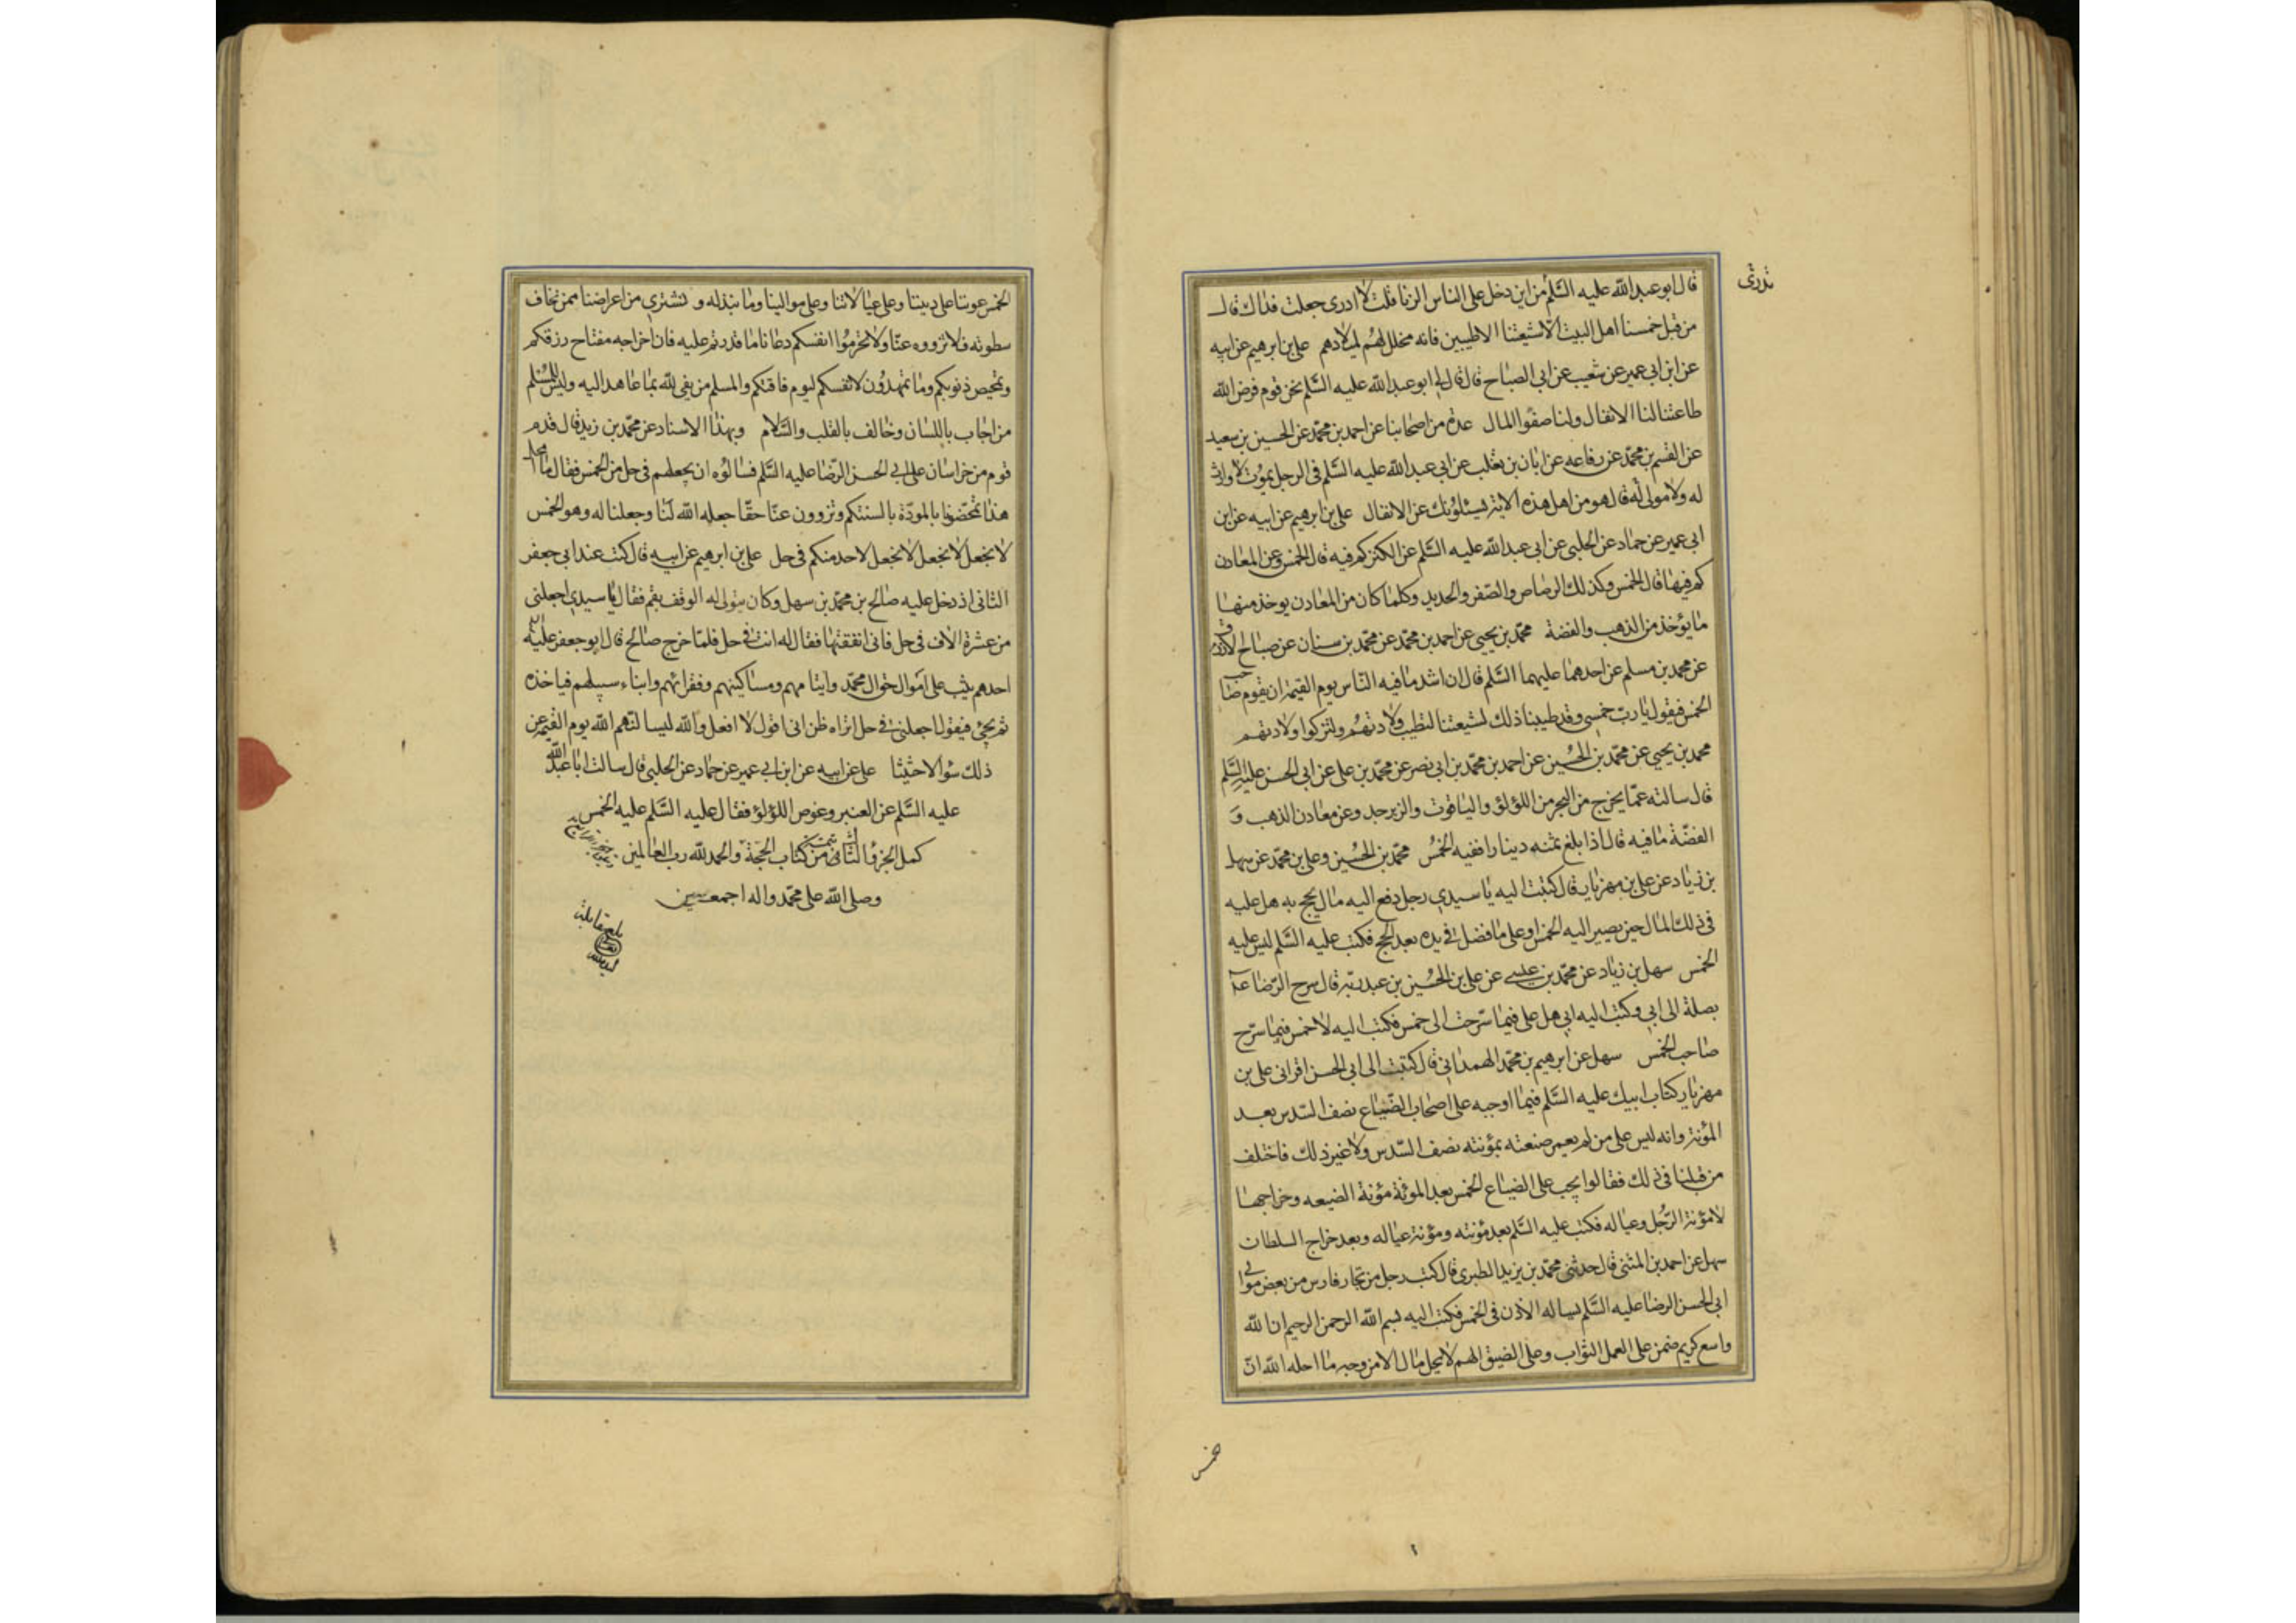 تدرى
قال ابو عبد الله عليه السَّلم من اين دخل على الناس الزنا قلت لا ادرى جعلت فداك قال
من قبل خمسنا اهل البيت الا شيعتنا الاطيبين فانه محلل لهم لميلادهم على بن ابرهيم عن ابيه
عن ابن ابى عمير عن شعيب عن ابى الصباح قال قال لى ابو عبد الله عليه السَّلم نحن قوم فرض الله
طاعتنا لنا الانفال ولنا صفوا المال عدة من اصحابنا عن احمد بن محمّد عن الحسين بن سعيد
عن القسم بن محمّد عن رفاعه عن ابان بن تغلب عن ابى عبد الله عليه السَّلم فى الرجل يموت لا وارث
له ولا مولى له قال هو من اهل هذه الاية يسئلونك عن الانفال على بن ابرهيم عن ابيه عن ابن
ابى عمير عن حماد عن الحلبى عن ابى عبد الله عليه السَّلم عن الكنز كم فيه قال الخمس وعن المعادن
كم فيها قال الخمس وكذلك الرصاص والصّفر والحديد وكلما كان من المعادن يوخذ منها
ما يؤخذ من الذهب والفضة محمّد بن يحيى عن احمد بن محمّد عن محمّد بن سنان عن صباح الازرق
عن محمد بن مسلم عن احدهما عليهما السَّلم قال ان اشد ما فيه النّاس يوم القيمة ان يقوم صاحب
الخمس فيقول يا ربّ خمسى وقد طيبنا ذلك لشيعتنا لتطيب ولادتهم ولتزكوا ولادتهم
محمد بن يحيى عن محمّد بن الحُسين عن احمد بن محمّد بن ابى نصر عن محمّد بن على عن ابى الحسن عليه السَّلم
قال سالته عمّا يخرج من البحر من اللؤلؤ والياقوت والزبرجد وعن معادن الذهب وَ
الفضّة ما فيه قال اذا بلغ ثمنه دينارا ففيه الخُمسُ محمّد بن الحُسين وعلى بن محمّد عن سهل
بن زياد عن على بن مهزيار قال كتبت اليه يا سيدى رجل دفع اليه مال يحج به هل عليه
فى ذلك المال حين يصير اليه الخمس او على ما فضل فى يده بعد الحج فكتب عليه السَّلم ليس عليه
الخمس سهل بن زياد عن محمّد بن عيسى عن على بن الحُسين بن عبد ربّه قال سرح الرّضا ع
بصلة الى ابى وكتب اليه ابى هل على فيما سرّحت الى خمس فكتب اليه لا خمس فيما سرّح
صاحب الخمس سهل عن ابرهيم بن محمّد الهمدانى قال كتبت الى ابى الحسن اقرانى على بن
مهزيار كتاب ابيك عليه السَّلم فيما اوجبه على اصحاب الضّياع نصف السّدس بعد
المؤنة وانه ليس على من لم يعمر صنعته بمؤنته نصف السّدس ولا غير ذلك فاختلف
من قبلنا فى ذلك فقالوا يجب على الضياع الخمس بعد الموئة مؤنة الضيعه وخراجها
لا مؤنة الرّجُل وعياله فكتب عليه السَّلم بعد مؤنته ومؤنة عياله وبعد خراج السلطان
سهل عن احمد بن المثنى قال حدثنى محمّد بن يزيد الطبرى قال كتب رجل من تجار فارس من بعض موالى
ابى الحسن الرضا عليه السَّلم يساله الاذن فى الخمس فكتب اليه بسم الله الرحمن الرحيم ان الله
واسع كريم ضمن على العمل الثواب وعلى الضيق الهم لا يحل مال الا من وجه ما احله الله انّ
خمس
الخمس عوننا على ديننا وعلى عيالاتنا وعلى موالينا وما نبذله و نشترى من اعراضنا ممن نخاف
سطوته فلا تزووه عنّا ولا تحرموا انفسكم دعانا ما قدرتم عليه فان اخراجه مفتاح رزقكم
وتمحيص ذنوبكم وما تمهدون لانفسكم ليوم فاقتكم والمسلم من يفى لله بما عاهد اليه وليس المُسلم
من اجاب باللسان وخالف بالقلب والسَّلام وبهذا الاسناد عن محمّد بن زيد قال قدم
قوم من خراسان على ابى الحسن الرّضا عليه السَّلم فسالوُه ان يجعلهم فى حل من الخمس فقال ما امحل
هذا تمحّضونا بالمودّة بالسنتكم وتزوون عنّا حقّا جعله الله لَنا وجعلنا له وهو الخمس
لا نجعل لا نجعل لا نجعل لاحد منكم فى حل على بن ابرهيم عن ابيه قال كنت عند ابى جعفر
الثانى اذ دخل عليه صالح بن محمّد بن سهل وكان يتولى له الوقف بقم فقال يا سيدى اجعلنى
من عشرة الاف فى حل فانى انفقتها فقال له انت فى حل فلمّا خرج صالح قال ابو جعفر عليه
احدهم يثب على اموال حوال محمّد وايتامهم ومساكينهم وفقرائهم وابناء سبيلهم فياخذه
ثم يجيئ فيقول اجعلنى فى حل اتراه ظن انى اقول لا افعل والله ليسالنّهم الله يوم القيمة عن
ذلك سُؤالا حثيثا على عن ابيه عن ابن ابى عمير عن حماد عن الحلبى قال سالت ابا عبد الله
عليه السَّلم عن العنبر وغوص اللؤلؤ فقال عليه السَّلم عليه الخمس
كمل الجزؤ الثانى من كتاب الحجّة والحمد لله رب العالمين
وصلى الله على محمّد واله اجمعين
بلغ مقابلة